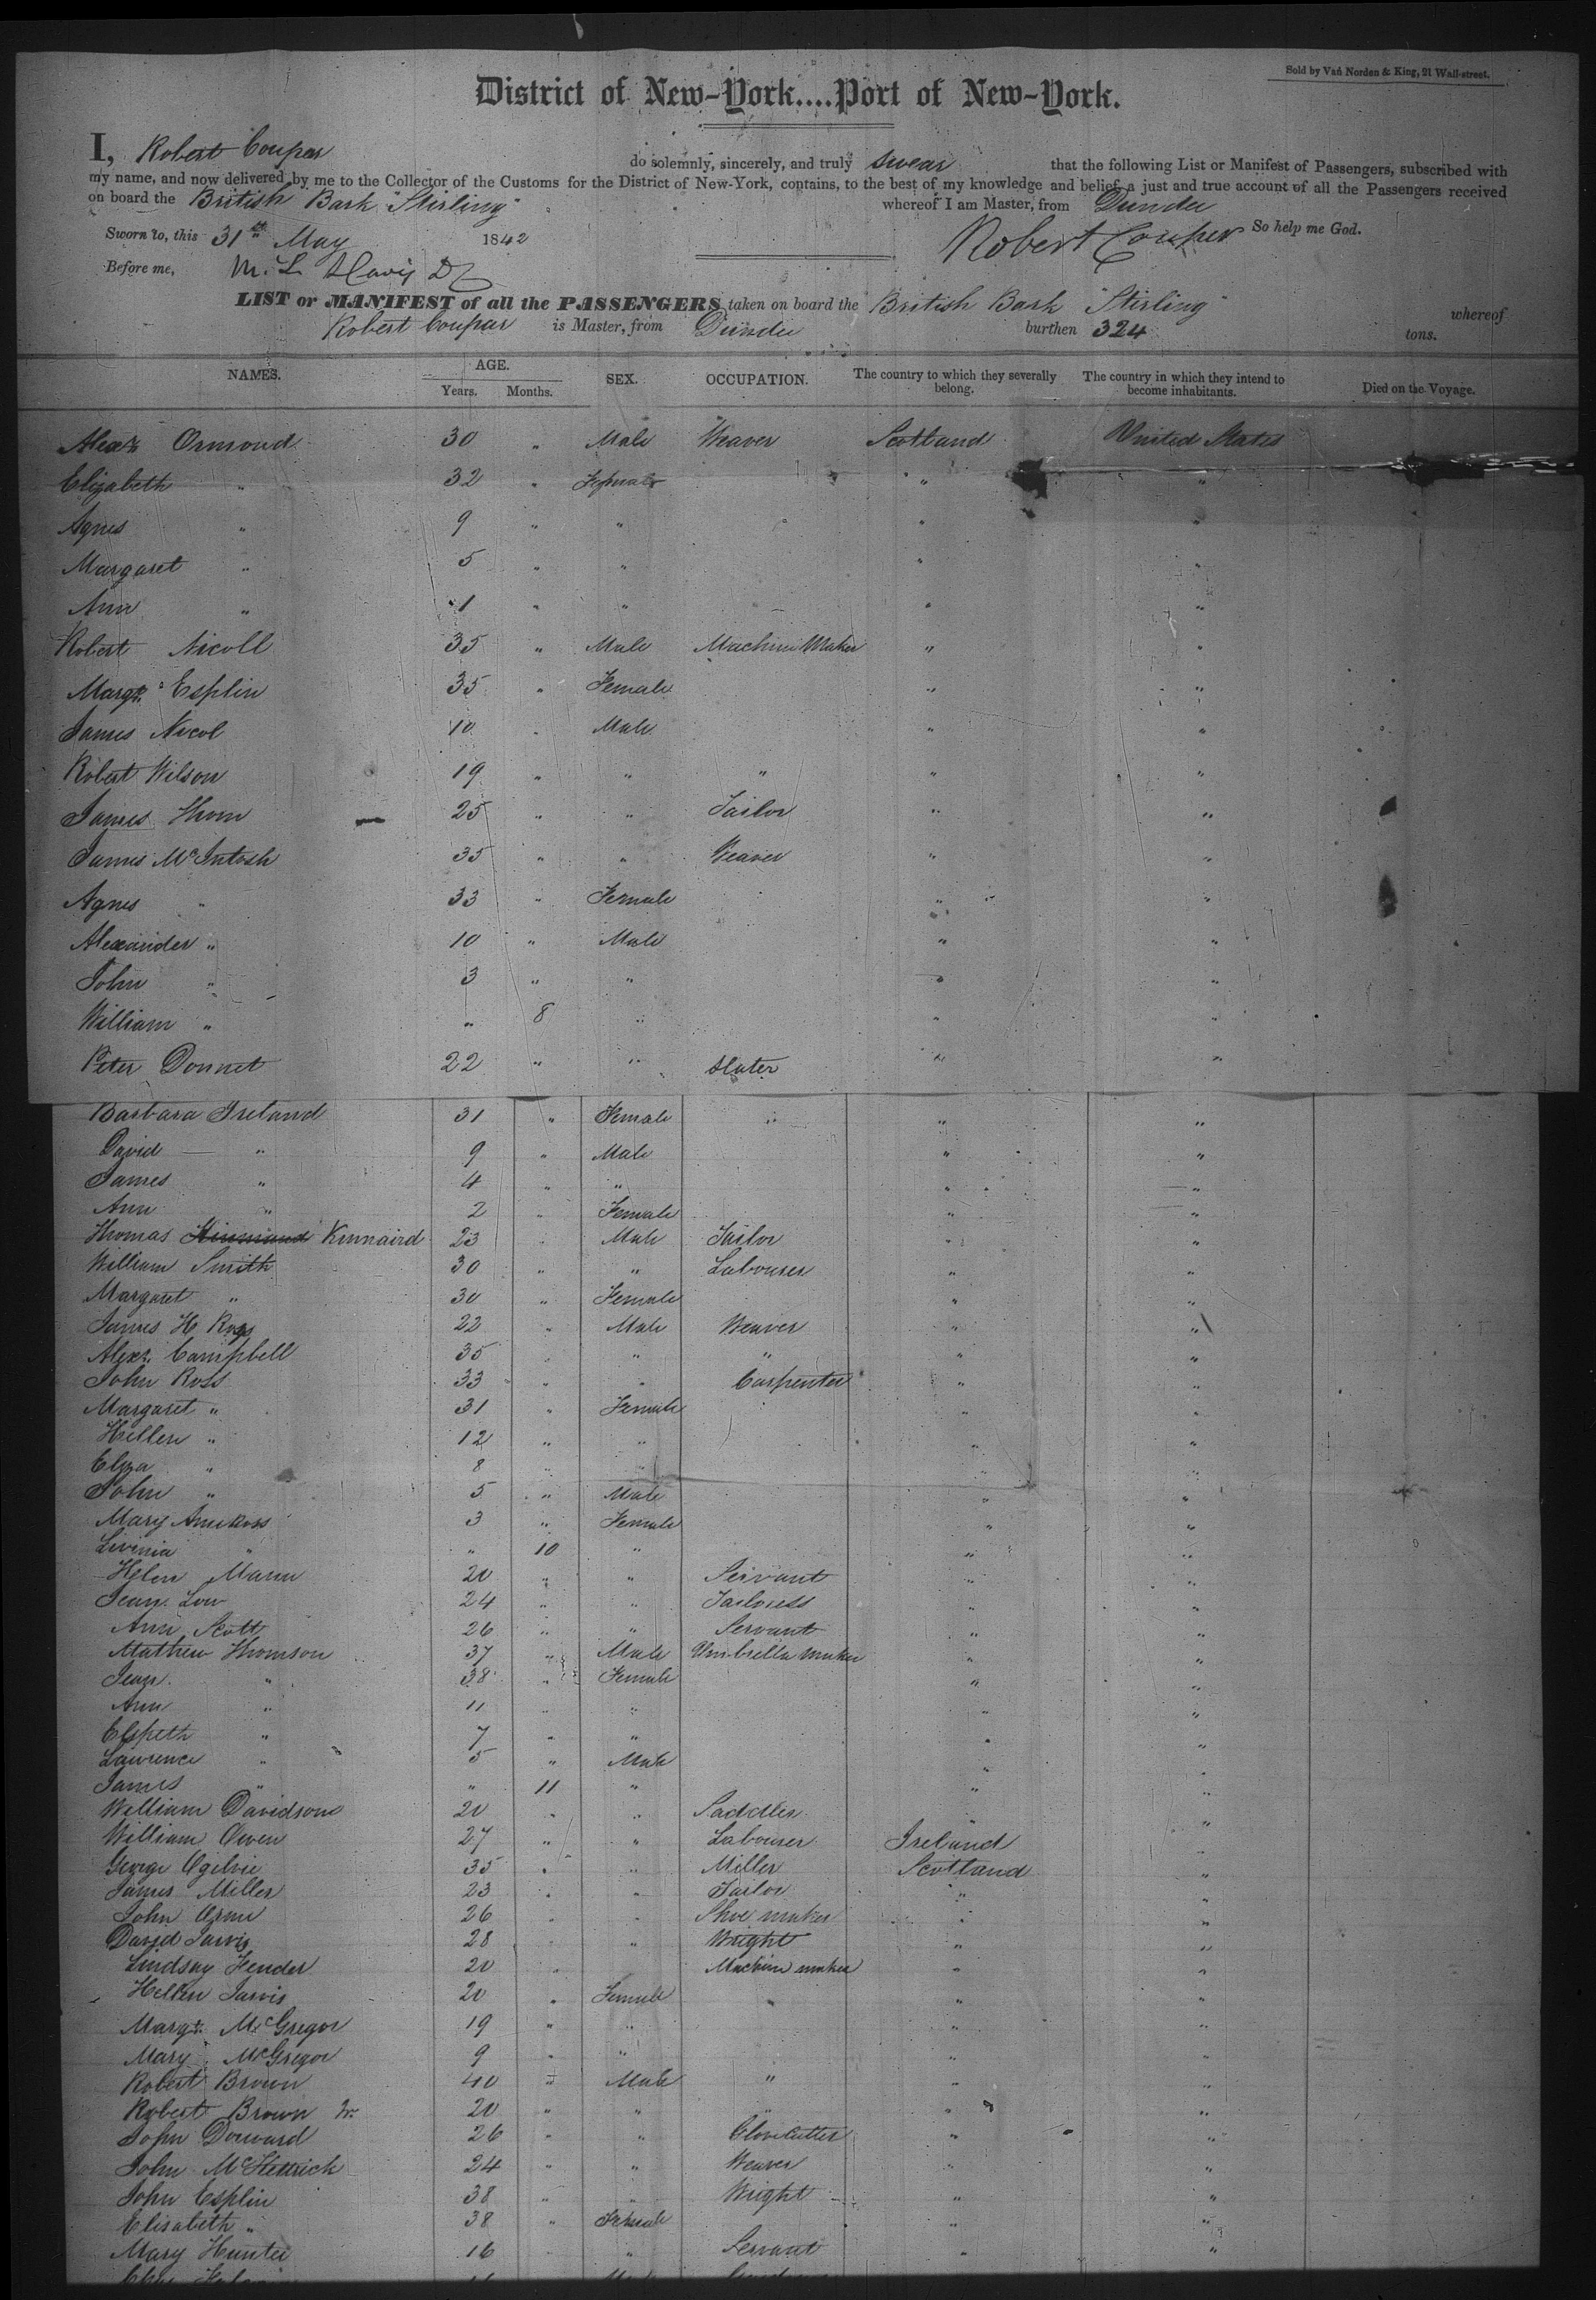 Sold by Van Norden & King, 21 Wall-street.
District of New-York....Port of New-York.
I, Robert Coupar do solemnly, sincerely, and truly swear that the following List or Manifest of Passengers, subscribed with
my name, and now delivered by me to the Collector of the Customs for the District of New-York, contains, to the best of my knowledge and belief, a just and true account of all the Passengers received
on board the British Bark "Stirling" whereof I am Master, from Dundee
Sworn to, this 31st May 1842 Robert Couper So help me God.
Before me, M. L. Davis
LIST or MANIFEST of all the PASSENGERS taken on board the British Bark "Stirling" whereof
Robert Coupar is Master, from Dundee burthen 324 tons.
NAMES. AGE. Years. Months. SEX. OCCUPATION. The country to which they severally belong. The country in which they intend to become inhabitants. Died on the Voyage.
Alexr Ormond 30 " Male Weaver Scotland United States
Elizabeth " 32 " Female " "
Agnes " 9 " " " "
Margaret " 5 " " " "
Ann " 1 " " " "
Robert Nicoll 35 " Male Machine Maker " "
Margt. Esplin 35 " Female " "
James Nicol 10 " Male " "
Robert Wilson 19 " " " " "
James Thom 25 " " Tailor " "
James McIntosh 35 " " Weaver " "
Agnes " 33 " Female " "
Alexander " 10 " Male " "
John " 3 " " " "
William " " 8 " " "
Peter Donnet 22 " " Slater " "
Barbara Ireland 31 " Female " " "
David " 9 " Male " "
James " 4 " " " "
Ann " 2 " Female " "
Thomas Kinnaird 23 " Male Tailor " "
William Smith 30 " " Labourer " "
Margaret " 30 " Female " "
James H 22 " Male Weaver " "
Alexr. Campbell 35 " " " " "
John Ross 33 " " Carpenter " "
Margaret " 31 " Female " "
Hellen " 12 " " " "
Eliza " 8 " " " "
John " 5 " Male " "
Mary Ann Ross 3 " Female " "
Livinia " " 10 " " "
Helen Mann 20 " " Servant " "
Jean Low 24 " " Tailoress " "
Ann Scott 26 " " Servant " "
Mathew Thomson 37 " Male Umbrella maker " "
Jean " 38 " Female " "
Ann " 11 " " " "
Elspeth " 7 " " " "
Lawrence " 5 " Male " "
James " " 11 " " "
William Davidson 20 " " Saddler " "
William Owen 27 " " Labourer Ireland "
George Ogilvie 35 " " Miller Scotland "
James Miller 23 " " Tailor " "
John 26 " " Shoe maker " "
David Jarvis 28 " " Wright " "
Lindsay Fender 20 " Machine maker " "
Hellen Jarvis 20 " Female " " "
Margt. McGregor 19 " " " "
Mary McGregor 9 " " " "
Robert Brown 40 " Male " " "
Robert Brown Jr. 20 " " " " "
John Dorward 26 " " Glovecutter " "
John 24 " " Weaver " "
John Esplin 38 " " Wright " "
Elisabeth " 38 " Female " "
Mary Hunter 16 " " Servant " "